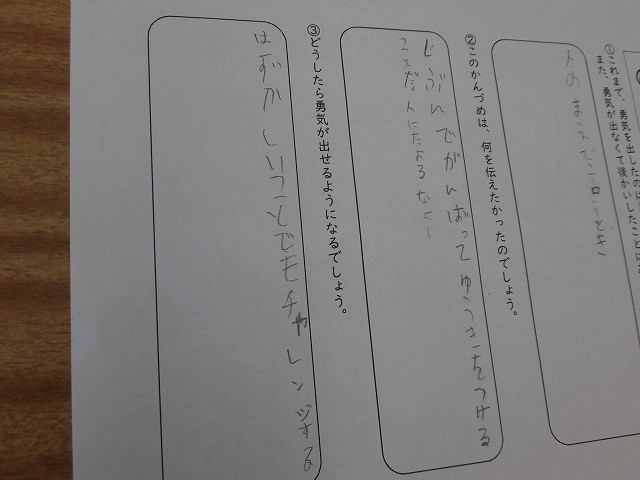 ①これまで、勇気を出したのは、
また、勇気が出なくて後かいしたことは
人のまえで
②このかんづめは、何を伝えたかったのでしょう。
じぶんでがんばってゆうきをつける
ことだ。人にたよるな
③どうしたら勇気が出せるようになるでしょう。
はずかしいことでもチャレンジする